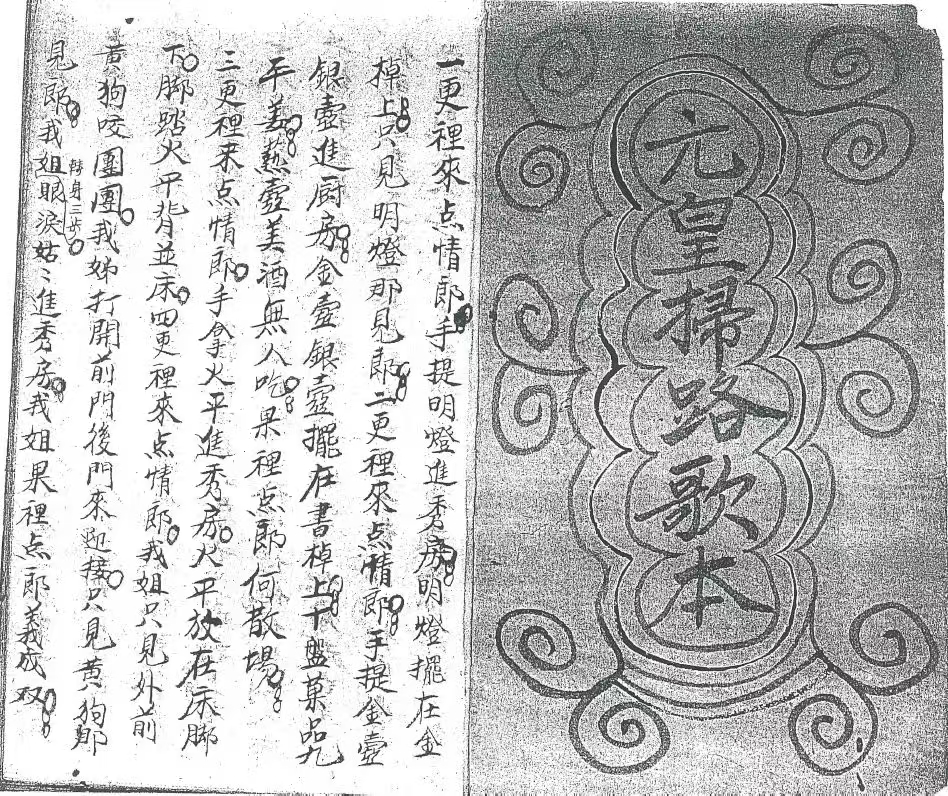 元皇掃路歌本
一更裡來点情郎手提明燈進秀房明燈擺在金
棹上只見明燈那見郎二更裡來点情郎手提金壺
銀壺進厨房金壺銀壺擺在書棹上十盤菓品九
平姜藍壺美酒無人吃果裡点郎何散場
三更裡來点情郎手拿火平進秀房火平放在床脚
下脚踏火平背並床四更裡來点情郎我姐只見外前
黃狗咬團團我娣打開前門後門來迎接只見黃狗那
見郎我姐眼淚姑〻進秀房我姐果裡点郎義成双
轉身三步